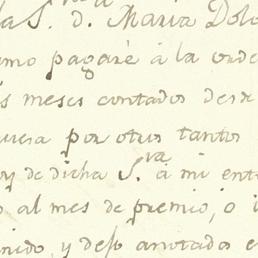 la S. d. Maria Dolo
mo pagaré á la orde
s meses contados desde
por otros tantos
oy de dicha S.ra á mi ent
o al mes de premio, o i
nido, y desp anotados e